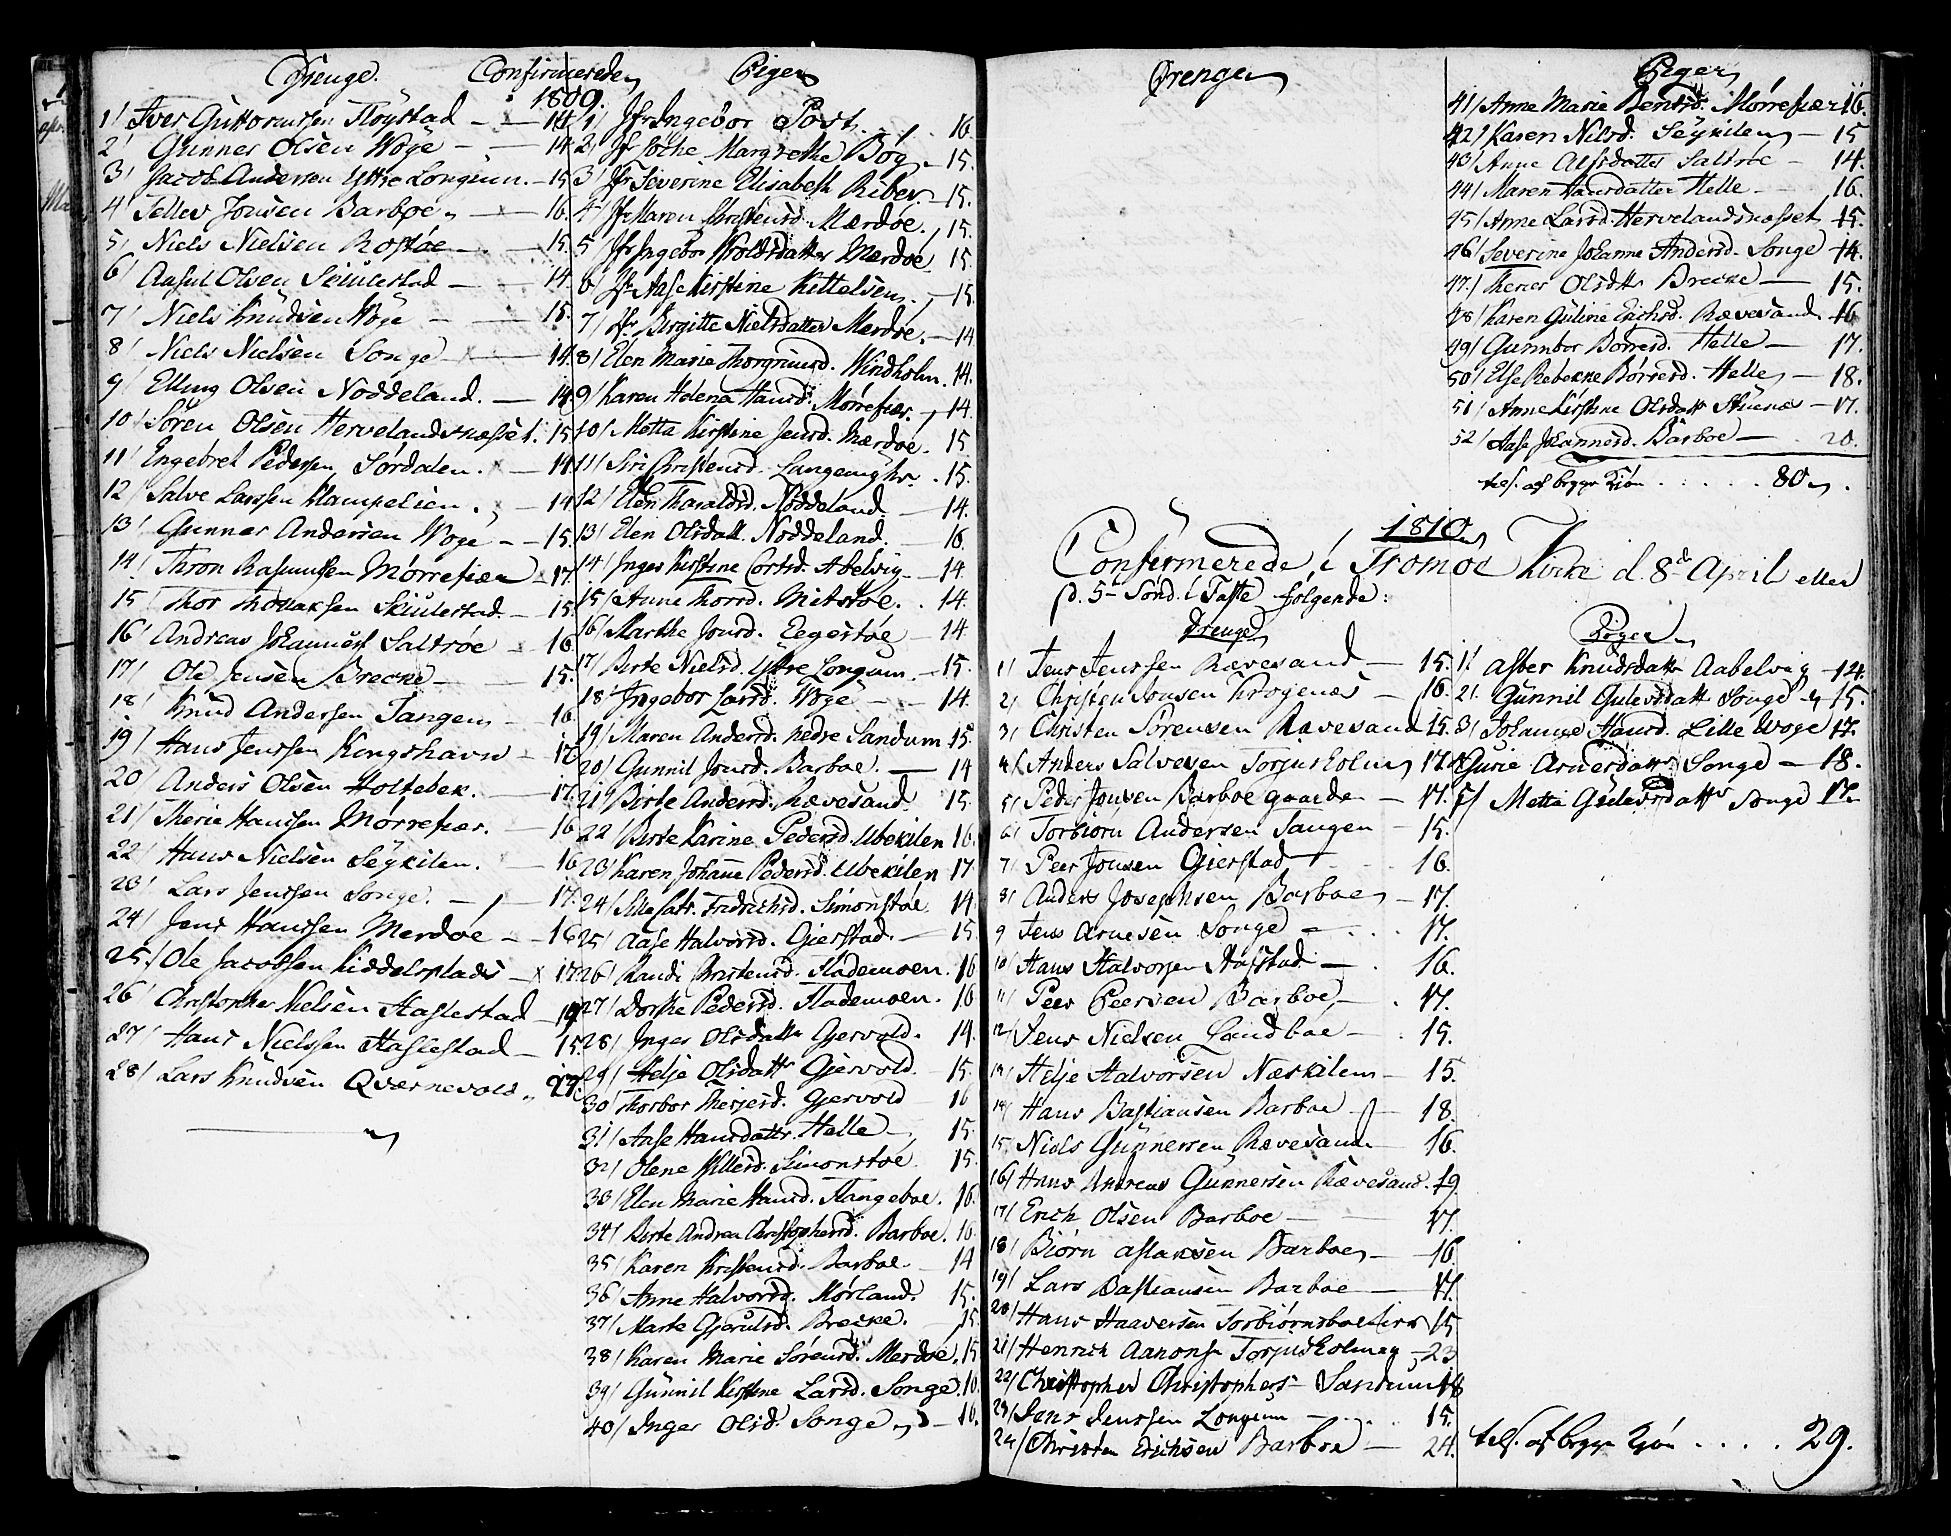 Drenge. Confirmerede Piger
1809.
1/ Iver Guttormsen Fløystad - 14
2/ Gunner Olsen Woge - 14
3/ Jacob Andersen Yttre Longum. - 15
4/ Tellev Jonsen Barboe - 16.
5/ Niels Nielsen Rostøe - 15.
6/ Aasul Olsen Skiulestad - 14.
7/ Niels Knudsen Woge - 15.
8/ Niels Nielsen Songe - 14.
9/ Elling Olsen Noddeland. - 14
10/ Søren Olsen Hervelandsnæsset. 15
11/ Engebret Pedersen Sørdalen. - 14
12/ Salve Larssen - 14
13/ Gunner Andersen Woge - 15.
14/ Thron Rasmussen Mørrefiær 17.
15/ Thor Skiulestad. - 15.
16/ Andreas Johannesf Saltrøe - 16
17/ Ole Jensen Brecke - 15.
18/ Knud Andersen Tangen - 16
19/ Hans Jenssen Kongshavn - 16
20/ Anders Olsen Holtebek. - 17.
21/ Therie Hanssen Mørrefiær. - 16
22/ Hans Nielsen Søykilen. - 16
23/ Lars Jenssen Songe. - 17.
24/ Jens Hanssen Merdøe - 16
25/ Ole Jacobsen Kiddelsplads - 17.
26/ Christopher Nielsen Haslestad - 19
27/ Hans Nielssen Haslestad - 15.
28/ Lars Knudsen Qværnevold - 27.
1/ Jfr Ingebor Post. 16.
2/ Jfr Margrethe Bøg - 15.
3/ Jfr Severine Elisabeth Riber. - 15.
4/ Jfr Maren Christensd. Mærdøe. 15.
5/ Jfr Ingebor Mærdøe 15.
6/ Jfr Aase Kirstine Kittelsen. - 15.
7/ Jfr Birgitte Nielsdatter Merdøe. - 14
8/ Elen Marie Thorgrimsd. Windholm. 14.
9/ Karen Helena Hansd. Mørrefiær. 14.
10/ Metta Kirstine Jensd. Mærdøe. 15
11/ Siri Christensd. 15.
12/ Elen Haraldsd. Noddeland. - 14.
13/ Elen Olsdatt. Noddeland. - 16.
14/ Inger Kirstine Cortsd. Abelvig - 14.
15/ Anne Thorsd. - 14.
16/ Marthe Jonsd. Eegestøe - 14
17/ Berte Nielsd. Yttre Longum. - 15.
18/ Ingebor Larsd. Woge - 14.
19/ Maren Andersd. nedre Sandum 15.
20/ Gunnil Jonsd. Barboe. - 14
21/ Birte Andersd. Rævesand. 15
22/ Berte Karine Pedersd. Ubekilen 16.
23/ Karen Johanne Pedersd. Ubekilen 17
24/ Fridrichsd. Simonstøe. 14
25/ Aase Halvorsd. Gierstad. - 15
26/ Randi Christensd. Flademoen. 16
27/ Dorthe Pedersd. Flademoen. 16
28/ Inger Olsdatter Gjervold. 14.
29/ Helje Olsdatter Gjervold. 15.
30/ Thorbor Therjesd. Gjervold 16
31/ Aase Hansdatter. Helle - 15.
32/ Olene Simonstøe. 15.
33/ Elen Marie Hansd. Flangeboe. 16.
34/ Berte Andrea Christophersd. Barboe. 16
35/ Karen Kristensd. Barboe. - 14
36/ Anne Halvorsd. Mørland. 15.
37/ Marte Gjerulsd. Brecke. 15.
38/ Karen Marie Sørensd. Merdøe. 15
39/ Gunnil Kirstine Larsd. Songe. 16.
40/ Inger Olsd. Songe - 16.
Drenge Piger
41/ Anne Marie Bentsd. Mørrefiær 16.
42/ Karen Nilsd. Søykilen - 15
43/ Anne Alfsdatter Saltrøe - 14.
44/ Maren Hansdatter Helle - 16.
45/ Anne Larsd. Hervelandsnæsset 15.
46/ Severine Johanne Andersd. Songe 14.
47/ Olsdatter Brecke - 15.
48/ Karen Guline Erichsd. Rævesand 16
49/ Gunnbor Børresd. Helle - 17.
50/ Else Rebekke Børresd. Helle - 18.
51/ Anne Kirstine Olsdatt Stuenæs - 17.
52/ Aase Johannesd. Barboe - 20.
tils. af begge Kiøn ..... 80.
1810
Confirmerede i Tromøe Kirke d. 8de April eller
p. 5te Sønd. i Faste følgende:
Drenge Piger
1/ Jens Jenssen Rævesand - 15.
2/ Christen Jonsen Krogenæs - 16.
3/ Christen Sørensen Rævesand 15.
4/ Anders Salvesen Torjusholmen 17.
5/ Peder Jonsen Barboe gaarden - 17.
6/ Torbiørn Andersen Tangen - 15.
7/ Peer Jonsen Gierstad - 16
8/ Anders Josephsen Barboe - 17.
9 Jens Arnesen Songe - 17.
10/ Hans Halvorsen - 16.
11/ Peer Peersen Barboe - 17.
12/ Jens Nielsen Sandboe - 15.
13/ Helje Halvorsen Næskilen - 15.
14/ Hans Bastiansen Barboe - 18.
15. Niels Gunnersen Rævesand - 16.
16/ Hans Andreas Gunnersen Rævesand. 19.
17/ Erich Olsen Barboe - 17.
18/ Biørn Aslaksen Barboe - 16
19/ Lars Bastiansen Barboe - 17.
20/ Hans Haaversen 15
21/ Henrich Aanons. Torjusholmen - 23
22/ Christopher Christophers- Sandum 18
23/ Jens Jenssen Longum - 15.
24/ Christen Erichsen Barboe - 24.
1/ Asber Knudsdatter Aabelvig - 14.
2/. Gunnil Gulevsdatt Songe - 15.
3/ Johanne Hansd. Lille Woge 17.
4/ Gurie Arnersdatter Songe - 18.
5/ Metta Gulevsdatter Songe 17.
tils. af begge Kiøn .... 29.